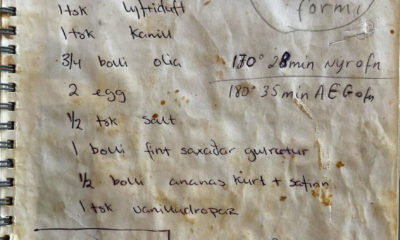 1 tsk lyftiduft
formi
1 tsk kanill
3/4 bolli olia
170° 28 min nýr ofn
2 egg
180° 35 min AEG ofn
1/2 tsk salt
1 bolli fint saxaðar gulrætur
1/2 bolli ananas kurl + safinn
1 tsk vanilludropar